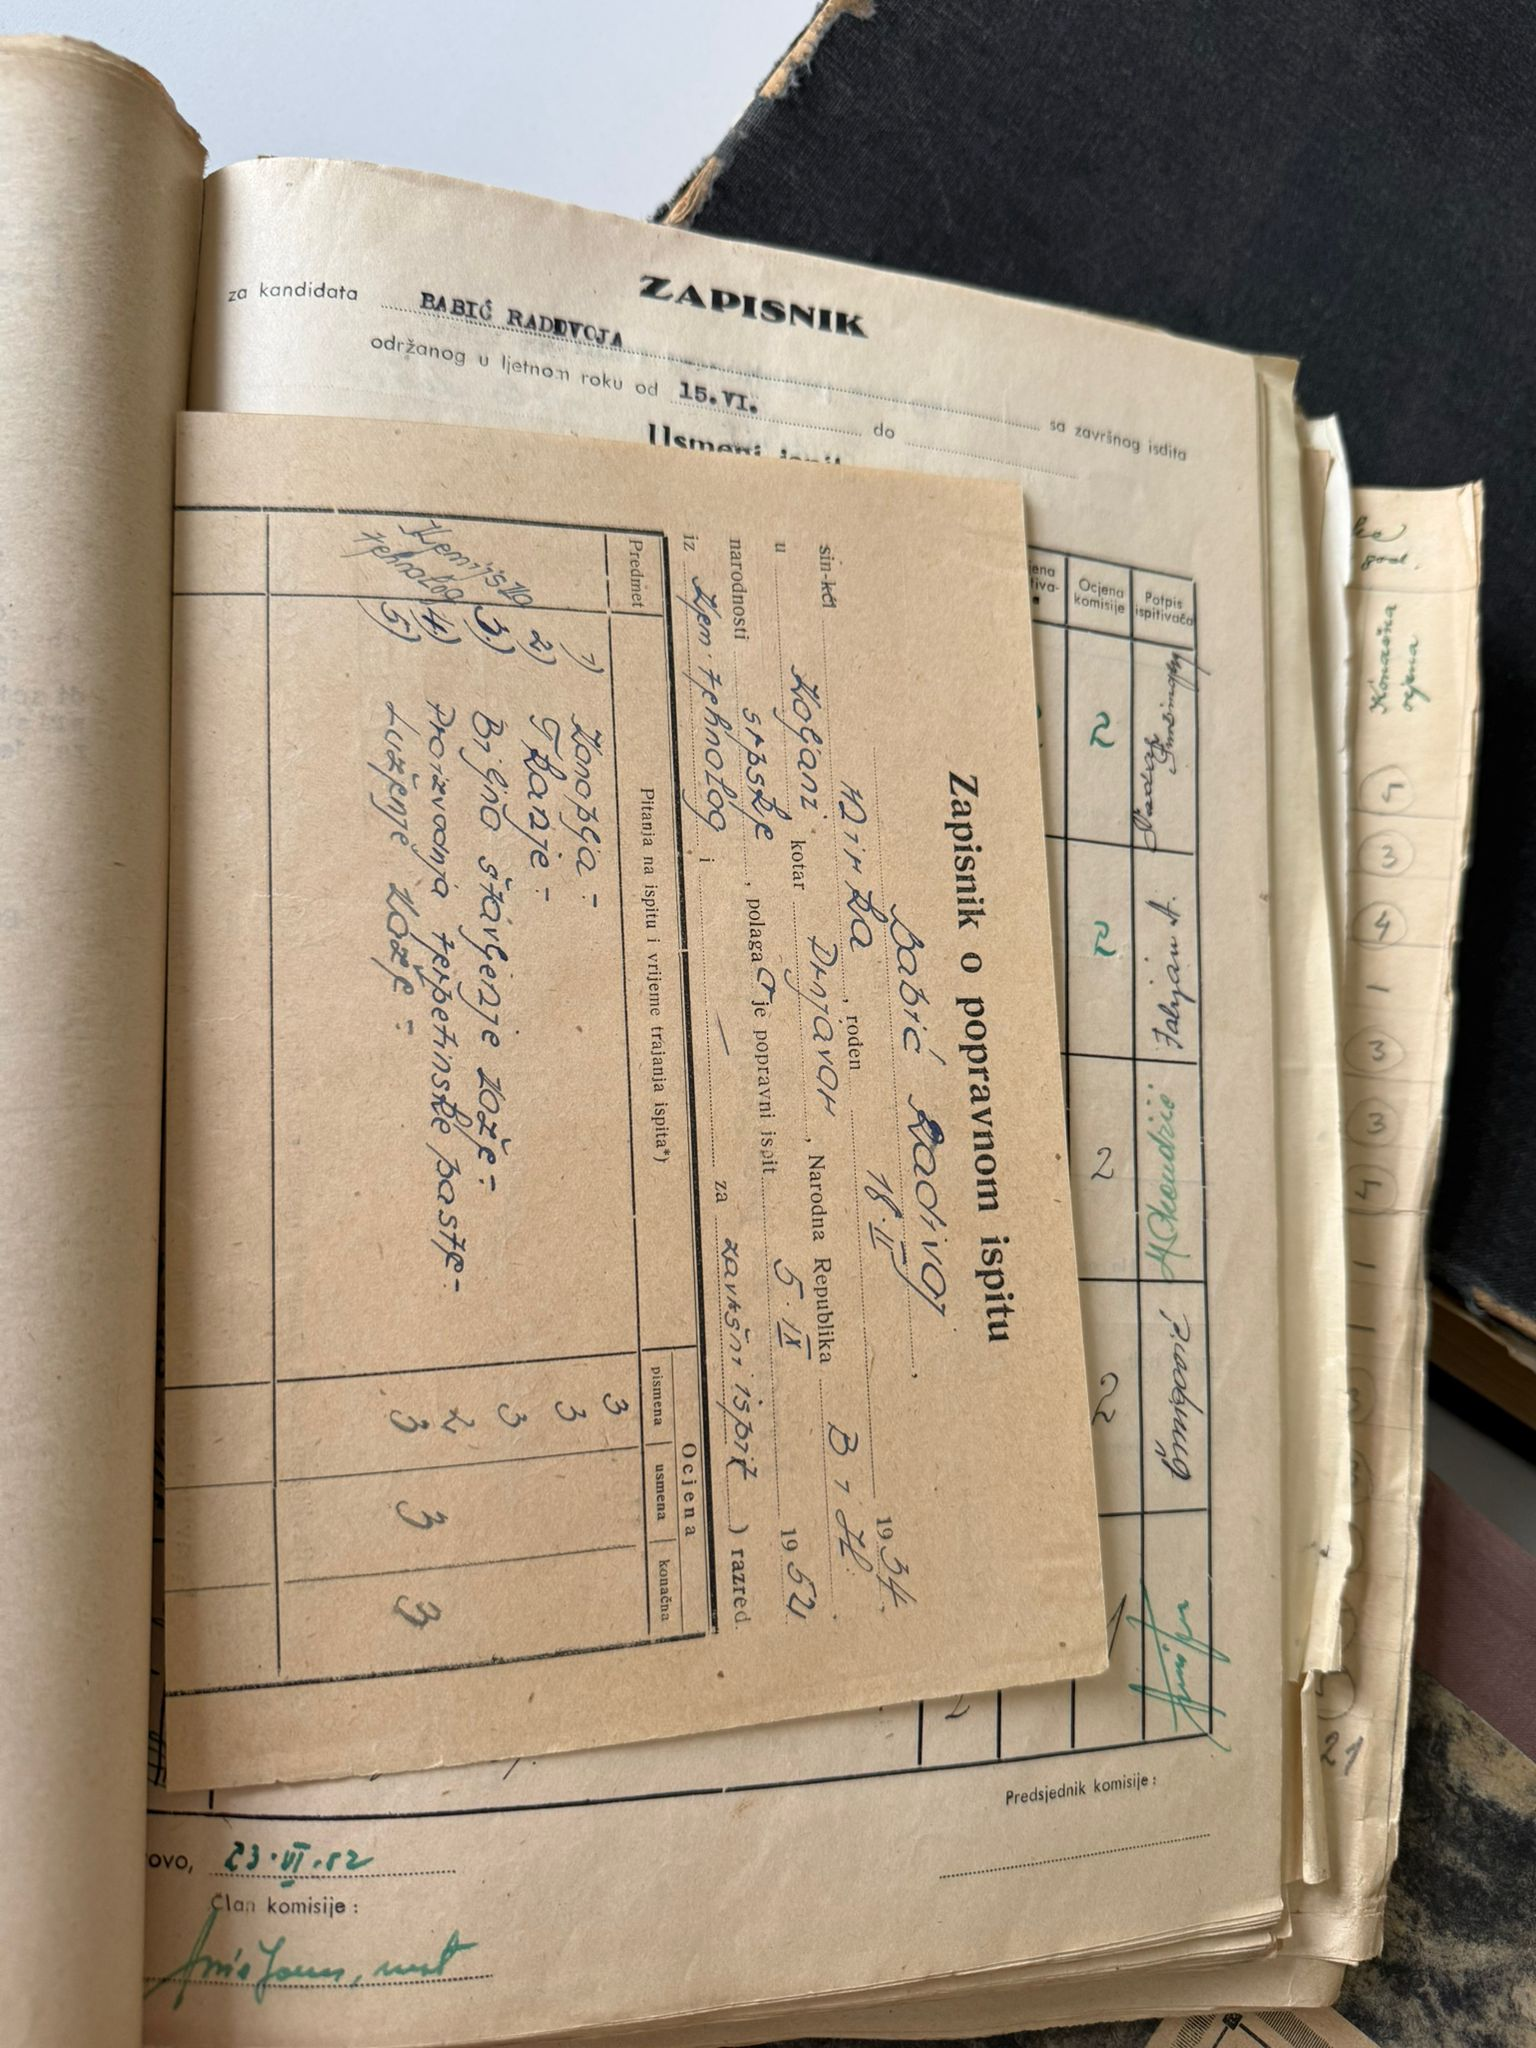 ZAPISNIK
za kandidata BABIĆ RADIVOJA sa završnog isdita
održanog u ljetnom roku od 15.VI. do
Usmeni ispit
Ocjena komisije
Potpis ispitivača
2
2 Fabijan A.
2
2
2
Predsjednik komisije:
ovo, 23.VI.52
Član komisije:
Zapisnik o popravnom ispitu
Babić Radivoj,
sin-kći Mirka, rođen 18.II 1934.
u Koljani kotar Prnjavor, Narodna Republika B i H.
narodnosti srpske, polagao je popravni ispit 5.IX 1952.
iz Kem. tehnolog i — za završni ispit) razred.
Predmet
Pitanja na ispitu i vrijeme trajanja ispita*)
Ocjena
pismena
usmena
konačna
Kemijska tehnolog
1) Konoplja:- 3
2) Tkanje:- 3
3.) Biljno štavljenje kože:- 3
4) Proizvodnja terpetinske paste:- 2
5) Luženje kože:- 3 3 3
god.
Konačna
ocjena
4
3
4
1
3
3
4
1
1
21